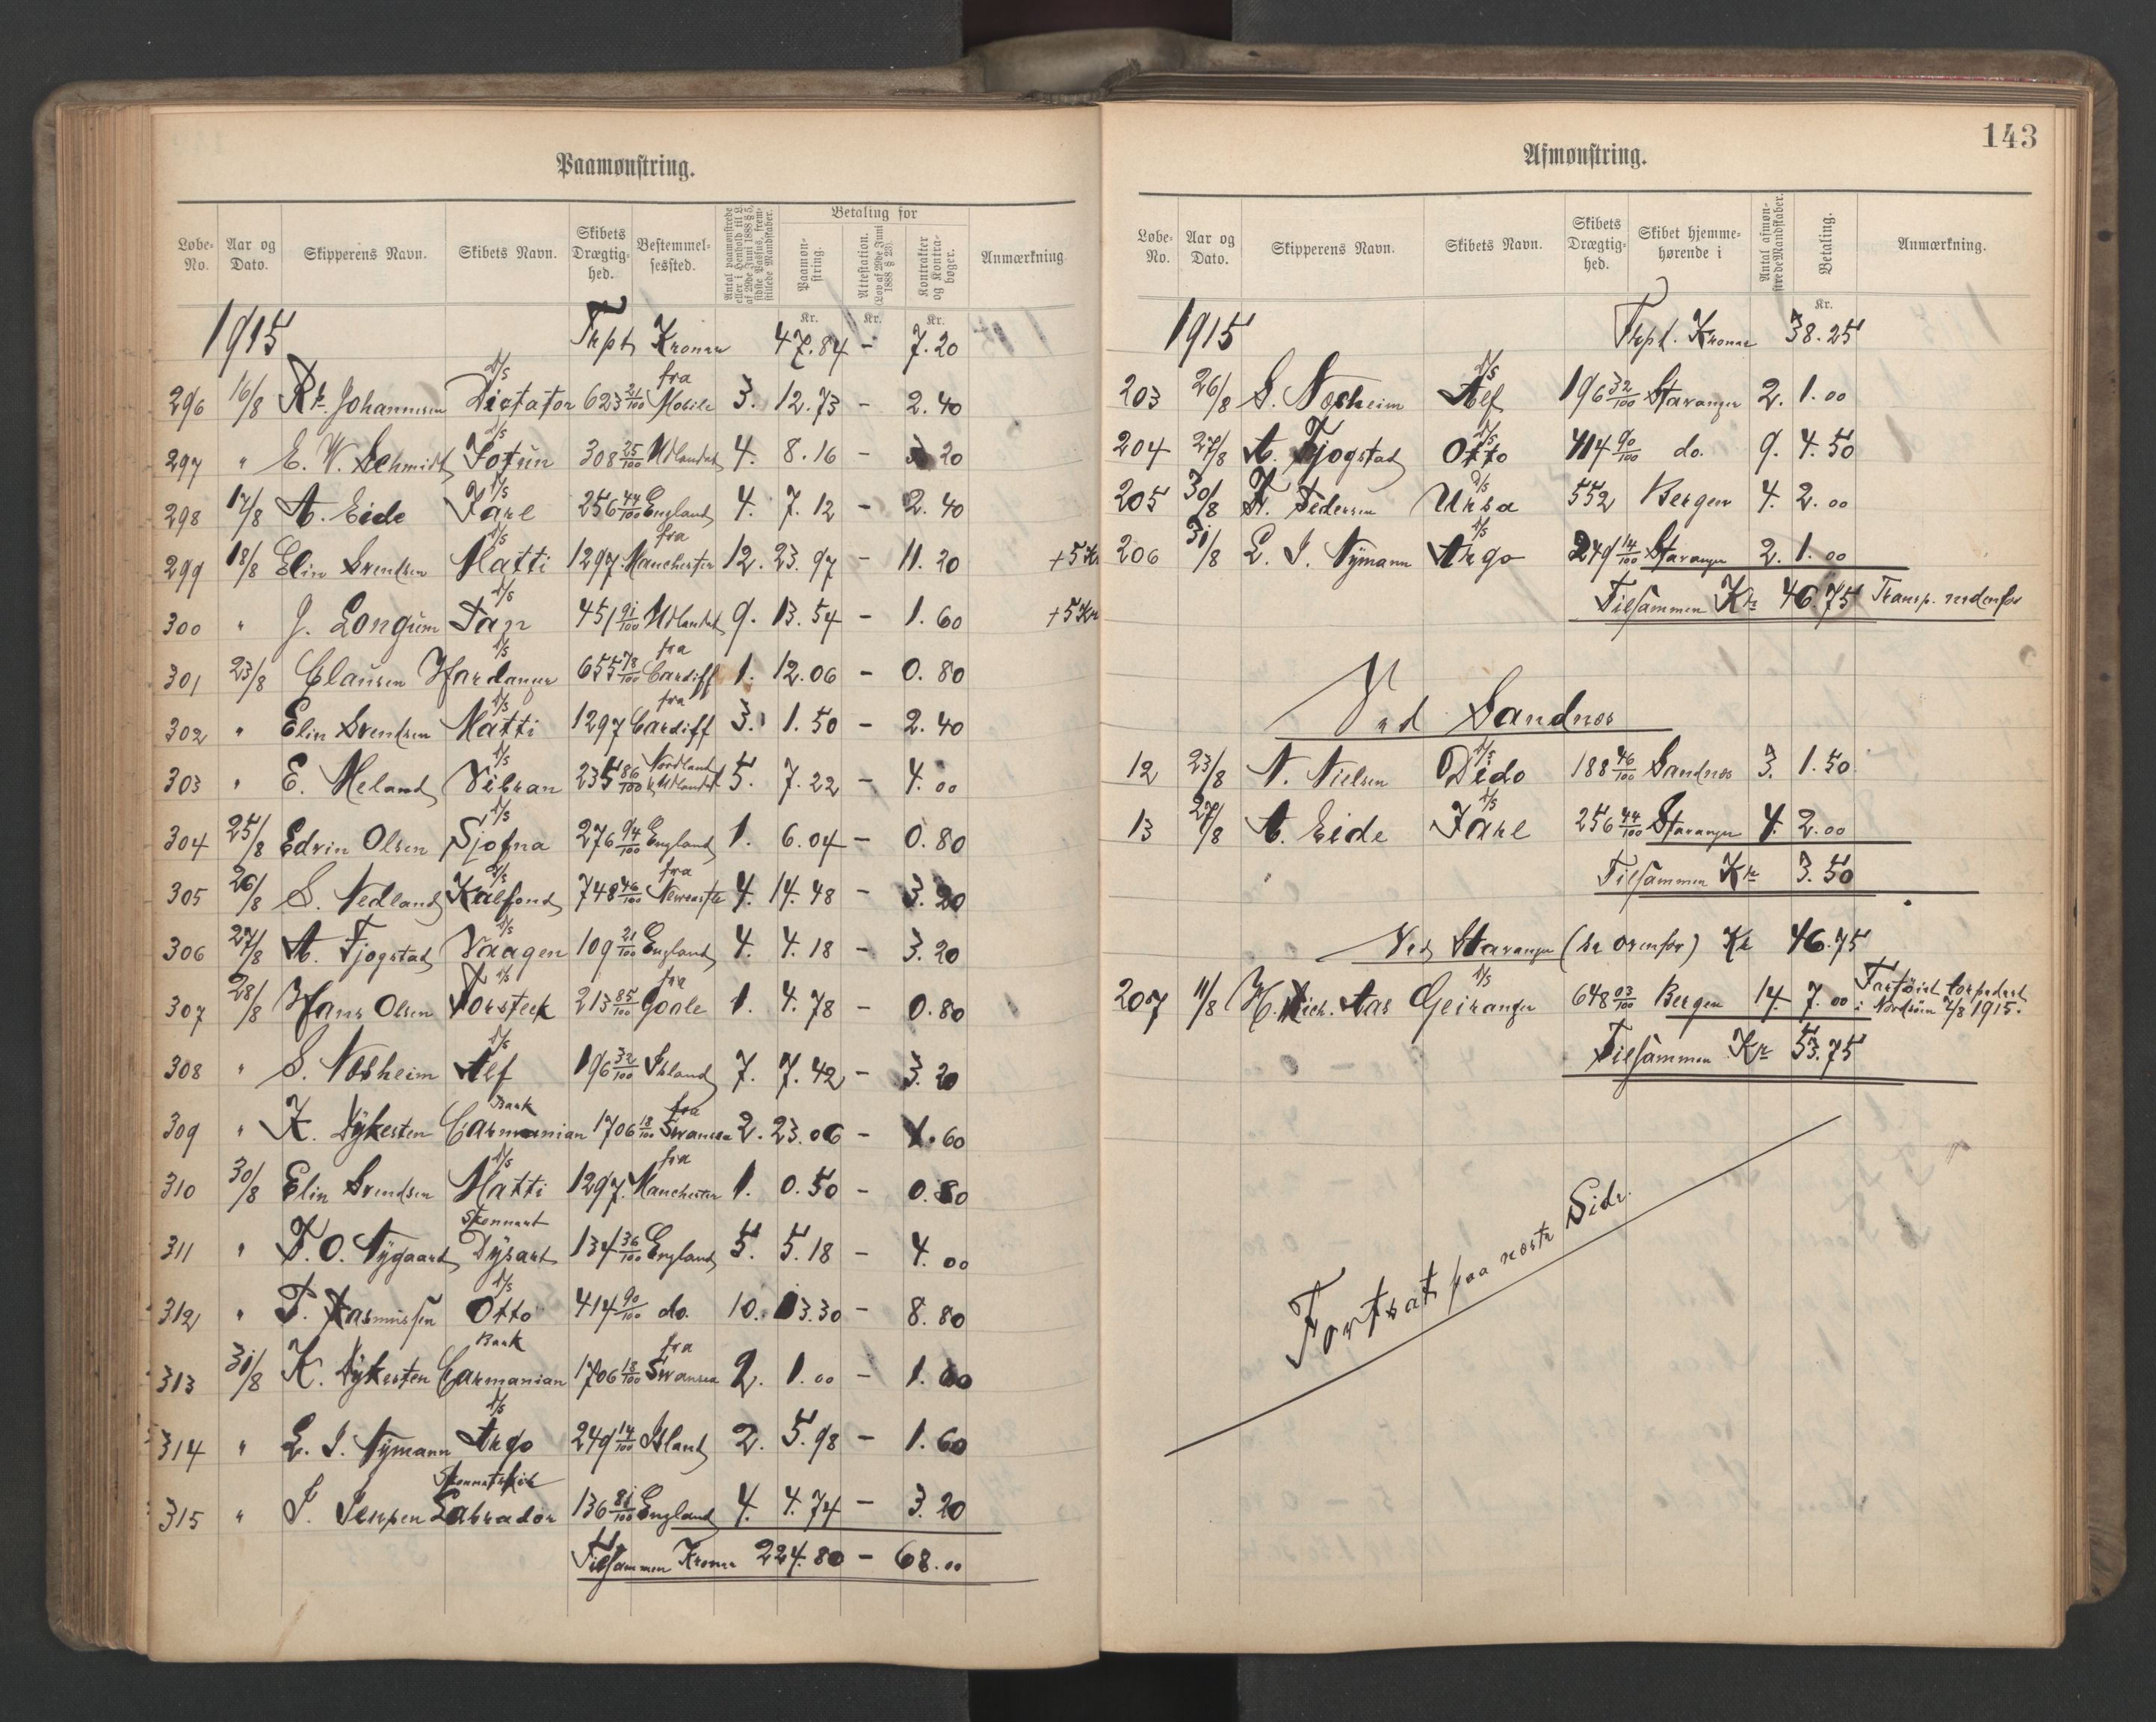 Paamønstring.
Løbe-No. Aar og Dato. Skipperens Navn. Skibets Navn. Skibets Drægtig-hed. Bestemmel-sessted. Antal paamønstrede eller i Henhold til L. af 29de Juni 1888 § 5, sidste Passus, frem-stillede Mandskaber. Betaling for Paamøn-string. Attestation. (Lov af 29de Juni 1888 § 23). Kontrakter og Kontra-bøger. Anmærkning
Kr. Kr. Kr.
1915 Trspt. Kroner 47.84 - 7.20
296 16/8 Rs. Johannesen D/S Dictator 623 21/100 fra Mobile 3. 12.73 - 2.40
297 " E. W. Schmidt D/S Jotun 308 25/100 Udlandet 4. 8.16 - 20
298 17/8 A. Eide D/S Jarl 256 44/100 England 4. 7.12 - 2.40
299 18/8 Elin Svendsen D/S Matti 1297. fra Manchester 12. 23.97 - 11.20 +5 Kr
300 " J. Longum D/S Jan 451 91/100 Udlandet 9. 13.54 - 1.60 +5 Kr
301 23/8 Clausen D/S Hardanger 655 78/100 fra Cardiff 1. 12.06 - 0.80
302 " Elin Svendsen D/S Matti 1297 fra Cardiff 3. 1.50 - 2.40
303 " E. Meland D/S Vibran 235 86/100 Nordland & Udlandet 5. 7.22 - 4.00
304 25/8 Edvin Olsen D/S Sjofna 276 94/100 England 1. 6.04 - 0.80
305 26/8 S. Nedland D/S Kalfond 748 46/100 fra Newcastle 4. 14.48 - 3.20
306 27/8 A. Fjogstad D/S Vaagen 109 21/100 England 4. 4.18 - 3.20
307 28/8 Hans Olsen D/S Torsteck 213 85/100 fra Goole 1. 4.78 - 0.80
308 " S. Nosheim D/S Alf 196 32/100 Island 7. 7.42 - 3.20
309 " K. Dykesten Bark Carmanian 1706 18/100 fra Swansea 2. 23.06 - 1.60
310 30/8 Elin Svendsen D/S Matti 1297. fra Manchester 1. 0.50 - 0.80
311 " T. O. Nygaard Skonnart Dysart 134 36/100 England 5. 5.18 - 4.00
312 " T. Rasmussen D/S Otto 414 90/100 do. 10. 13.30 - 8.80
313 31/8 K. Dykesten Bark Carmanian 1706 18/100 fra Swansea 2. 1.00 - 1.60
314 " E. J. Nymann D/S Argo 249 14/100 Island 2. 5.98 - 1.60
315 " J. Jensen Labrador 136 81/100 England 4. 4.74 - 3.20
Tilsammen Kroner 224.80 - 68.00
143
Afmønstring.
Løbe-No. Aar og Dato. Skipperens Navn. Skibets Navn. Skibets Drægtig-hed. Skibet hjemme-hørende i Antal afmøn-strede Mandskaber. Betaling. Anmærkning.
Kr.
1915 Trspt. Kroner 38.25
203 26/8 S. Nosheim D/S Alf 196 32/100 Stavanger 2. 1.00
204 27/8 A. Fjogstad D/S Otto 414 90/100 do. 9. 4.50
205 30/8 Fr. Pedersen D/S Ursa 552 Bergen 4. 2.00
206 31/8 E. J. Nymann D/S Argo 249 14/100 Stavanger 2. 1.00
Tilsammen Kr 46.75 Transp. nedenfor
Ved Sandnes
12 23/8 N. Nielsen D/S Dido 188 46/100 Sandnes 3. 1.50
13 27/8 A. Eide D/S Jarl 256 44/100 Stavanger 4. 2.00
Tilsammen Kr 3.50
Ved Stavanger (se ovenfor) Kr 46.75
207 11/8 H. Mich. Aas D/S Geiranger 648 03/100 Bergen 14. 7.00 Fartöiet torpedert i Nordsöen 7/8 1915.
Tilsammen Kr 53.75
Fortsat paa næste Side.